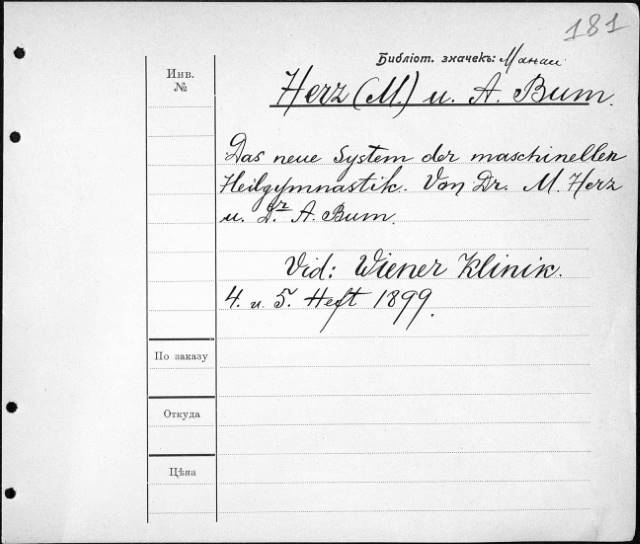 181
Библіот. значекъ:
Инв.
№
Herz (M.) u. A. Bum.
Das neue System der maschinellen
Heilgymnastik. Von Dr. M. Herz
u. Dr. A. Bum.
Vid: Wiener Klinik.
4. u. 5. Heft 1899.
По заказу
Откуда
Цѣна